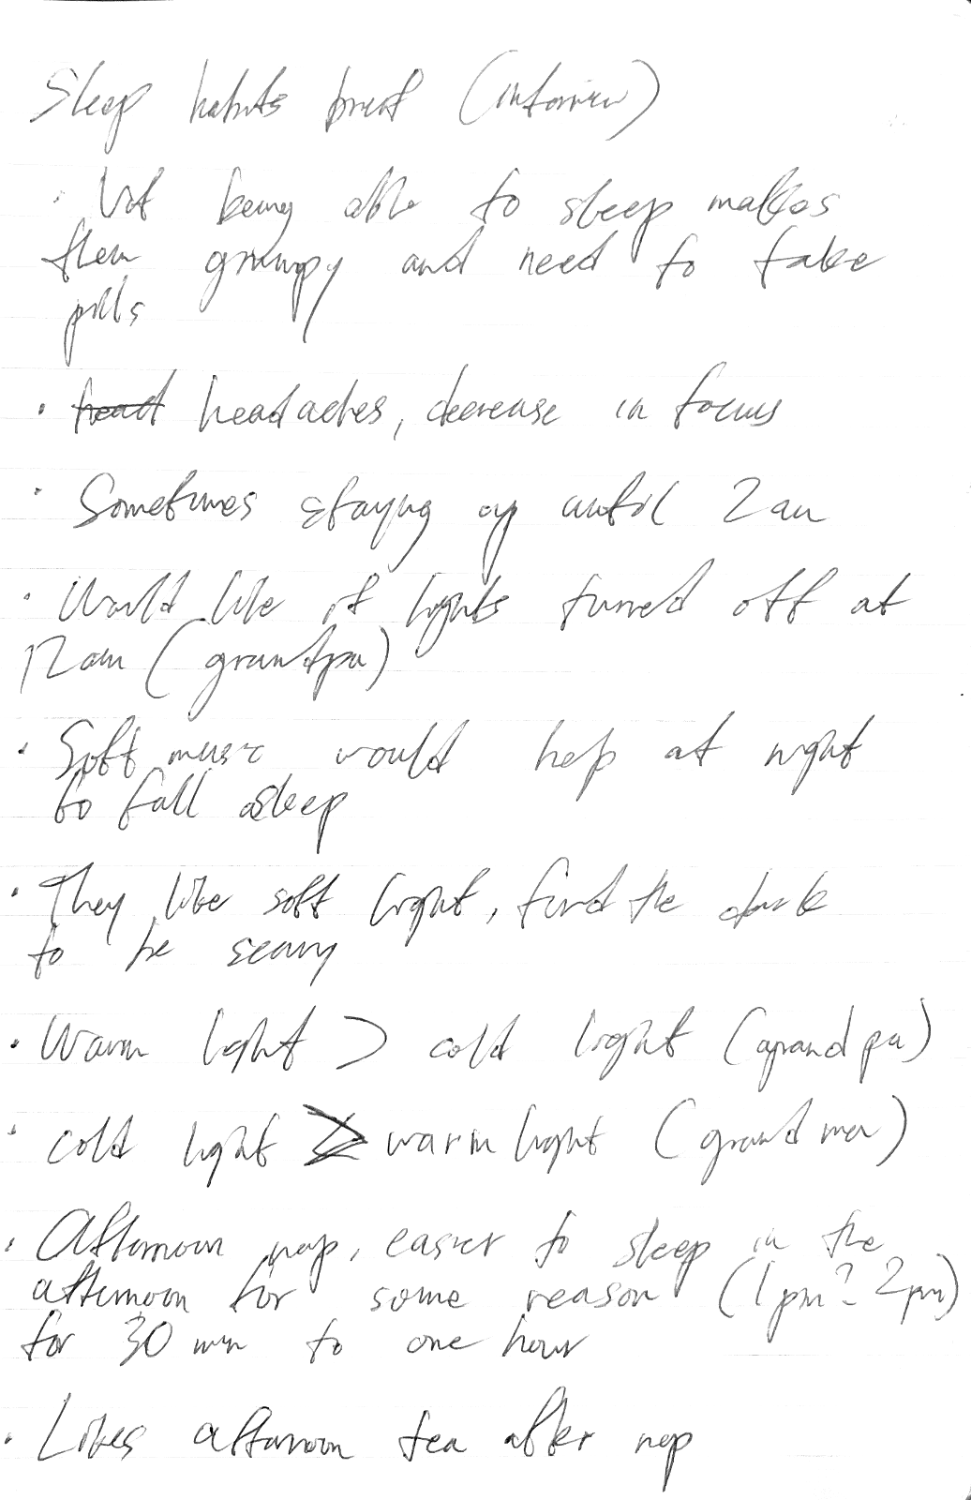 Sleep habits brief (interview)
· Not being able to sleep makes
them grumpy and need to take
pills
· headaches, decrease in focus
· Sometimes staying up until 2am
· Would like if lights turned off at
12am (grandpa)
· Soft music would help at night
to fall asleep
· They like soft light, find the dark
to be scary
· Warm light > cold light (grandpa)
· cold light > warm light (grandma)
· Afternoon nap, easier to sleep in the
afternoon for some reason (1pm - 2pm)
for 30 min to one hour
· Likes afternoon tea after nap